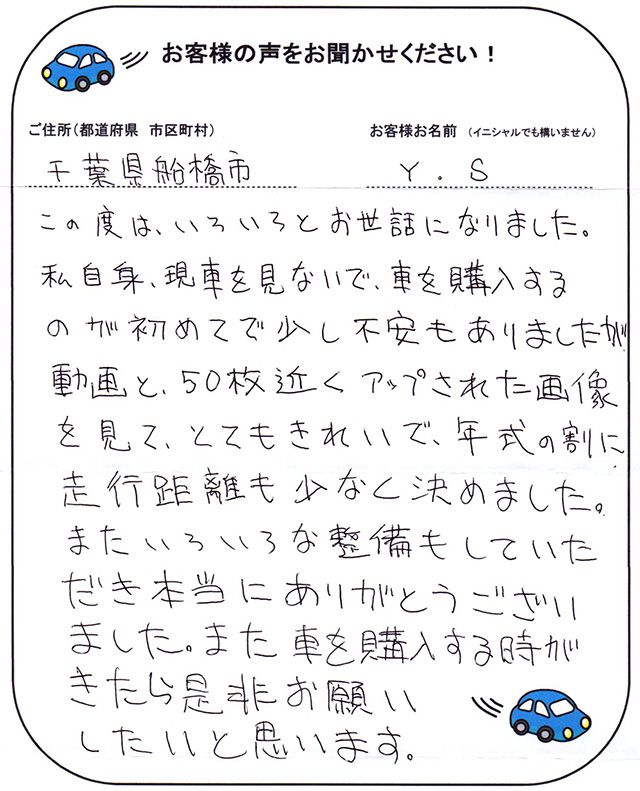 お客様の声をお聞かせください！
ご住所（都道府県　市区町村）　お客様お名前　（イニシャルでも構いません）
千葉県船橋市　Y．S
この度は、いろいろとお世話になりました。
私自身、現車を見ないで、車を購入する
のが初めてで少し不安もありましたが
動画と、50枚近くアップされた画像
を見て、とてもきれいで、年式の割に
走行距離も少なく決めました。
またいろいろな整備もしていた
だき本当にありがとうござい
ました。また車を購入する時が
きたら是非お願い
したいと思います。